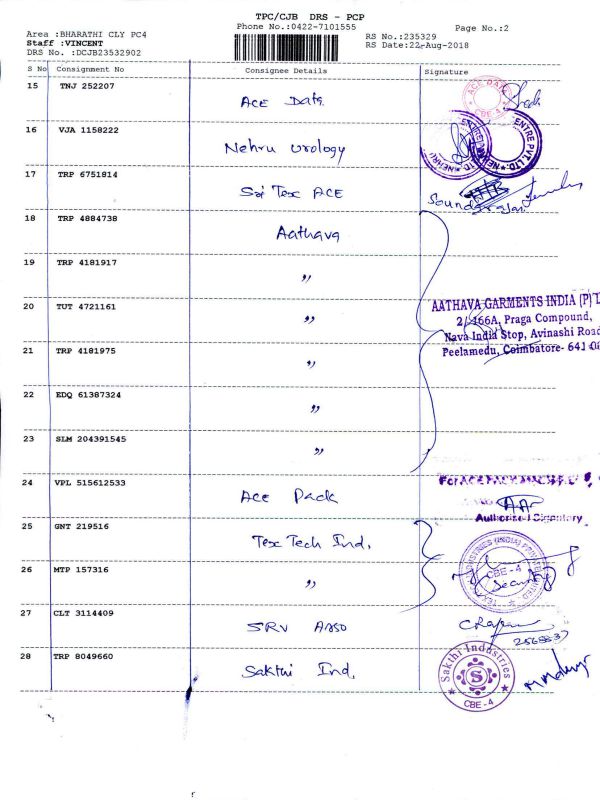 TPC/CJB DRS - PCP
Phone No.:0422-7101555
Page No.:2
Area :BHARATHI CLY PC4
Staff :VINCENT
DRS No. :DCJB23532902
RS No.:235329
RS Date:22-Aug-2018
S No Consignment No Consignee Details Signature
15 TNJ 252207 ACE Data
ACE DATA CBE-4
16 VJA 1158222 Nehru Urology
17 TRP 6751814 Sai Tex ACE
18 TRP 4884738 Aathava
19 TRP 4181917 "
20 TUT 4721161 "
AATHAVA GARMENTS INDIA (P) L
2/166A, Praga Compound,
Nava India Stop, Avinashi Road
Peelamedu, Coimbatore- 641
21 TRP 4181975 "
22 EDQ 61387324 "
23 SLM 204391545 "
24 VPL 515612533 ACE Pack
For ACE PACK
Authorised Signatory
25 GNT 219516 Tex Tech Ind.
26 MTP 157316 "
CBE-4
Security
27 CLT 3114409 SRV
28 TRP 8049660 Sakthi Ind.
Sakthi Industries
CBE-4